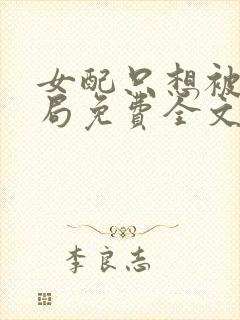 女配只想被
局免费全文
李良志